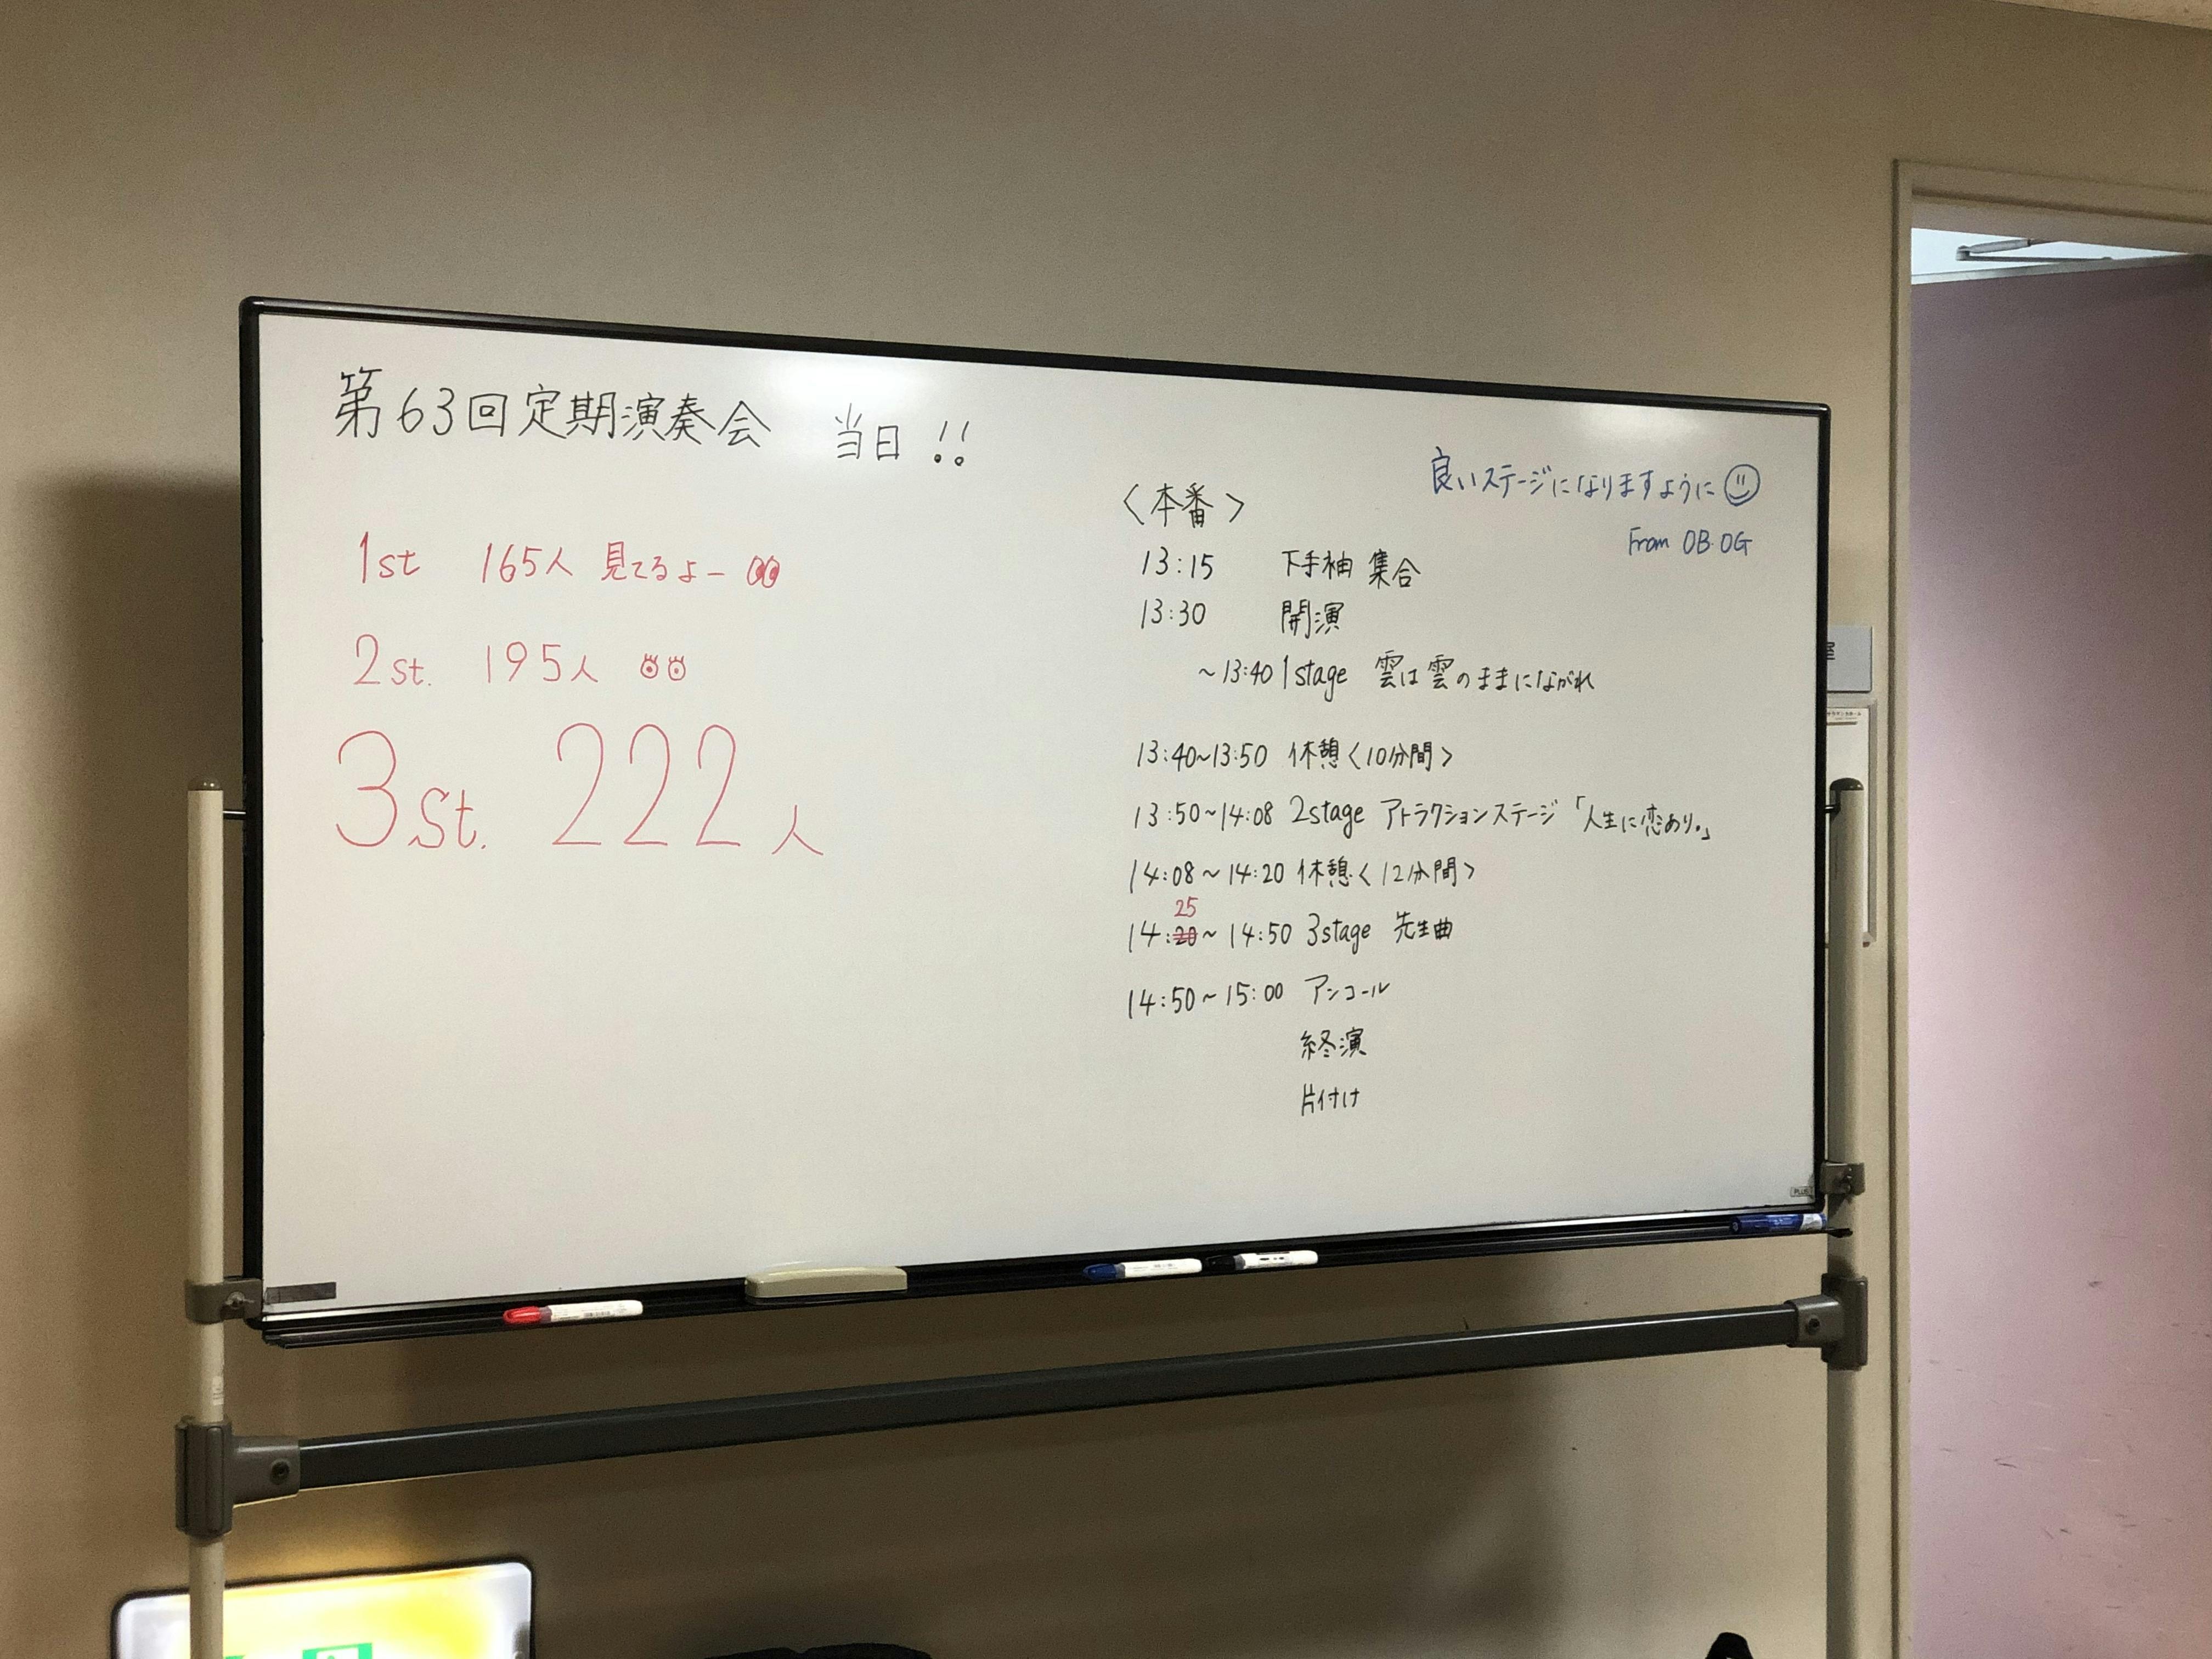 第63回定期演奏会 当日!!
1st 165人 見てるよー
2st. 195人
3st. 222人
良いステージになりますように
From OB.OG
〈本番〉
13:15 下手袖 集合
13:30 開演
~13:40 1stage 雲は雲のままにながれ
13:40~13:50 休憩〈10分間〉
13:50~14:08 2stage アトラクションステージ「人生に恋あり。」
14:08~14:20 休憩〈12分間〉
25
14:20~14:50 3stage 先生曲
14:50~15:00 アンコール
終演
片付け
PLUS
室